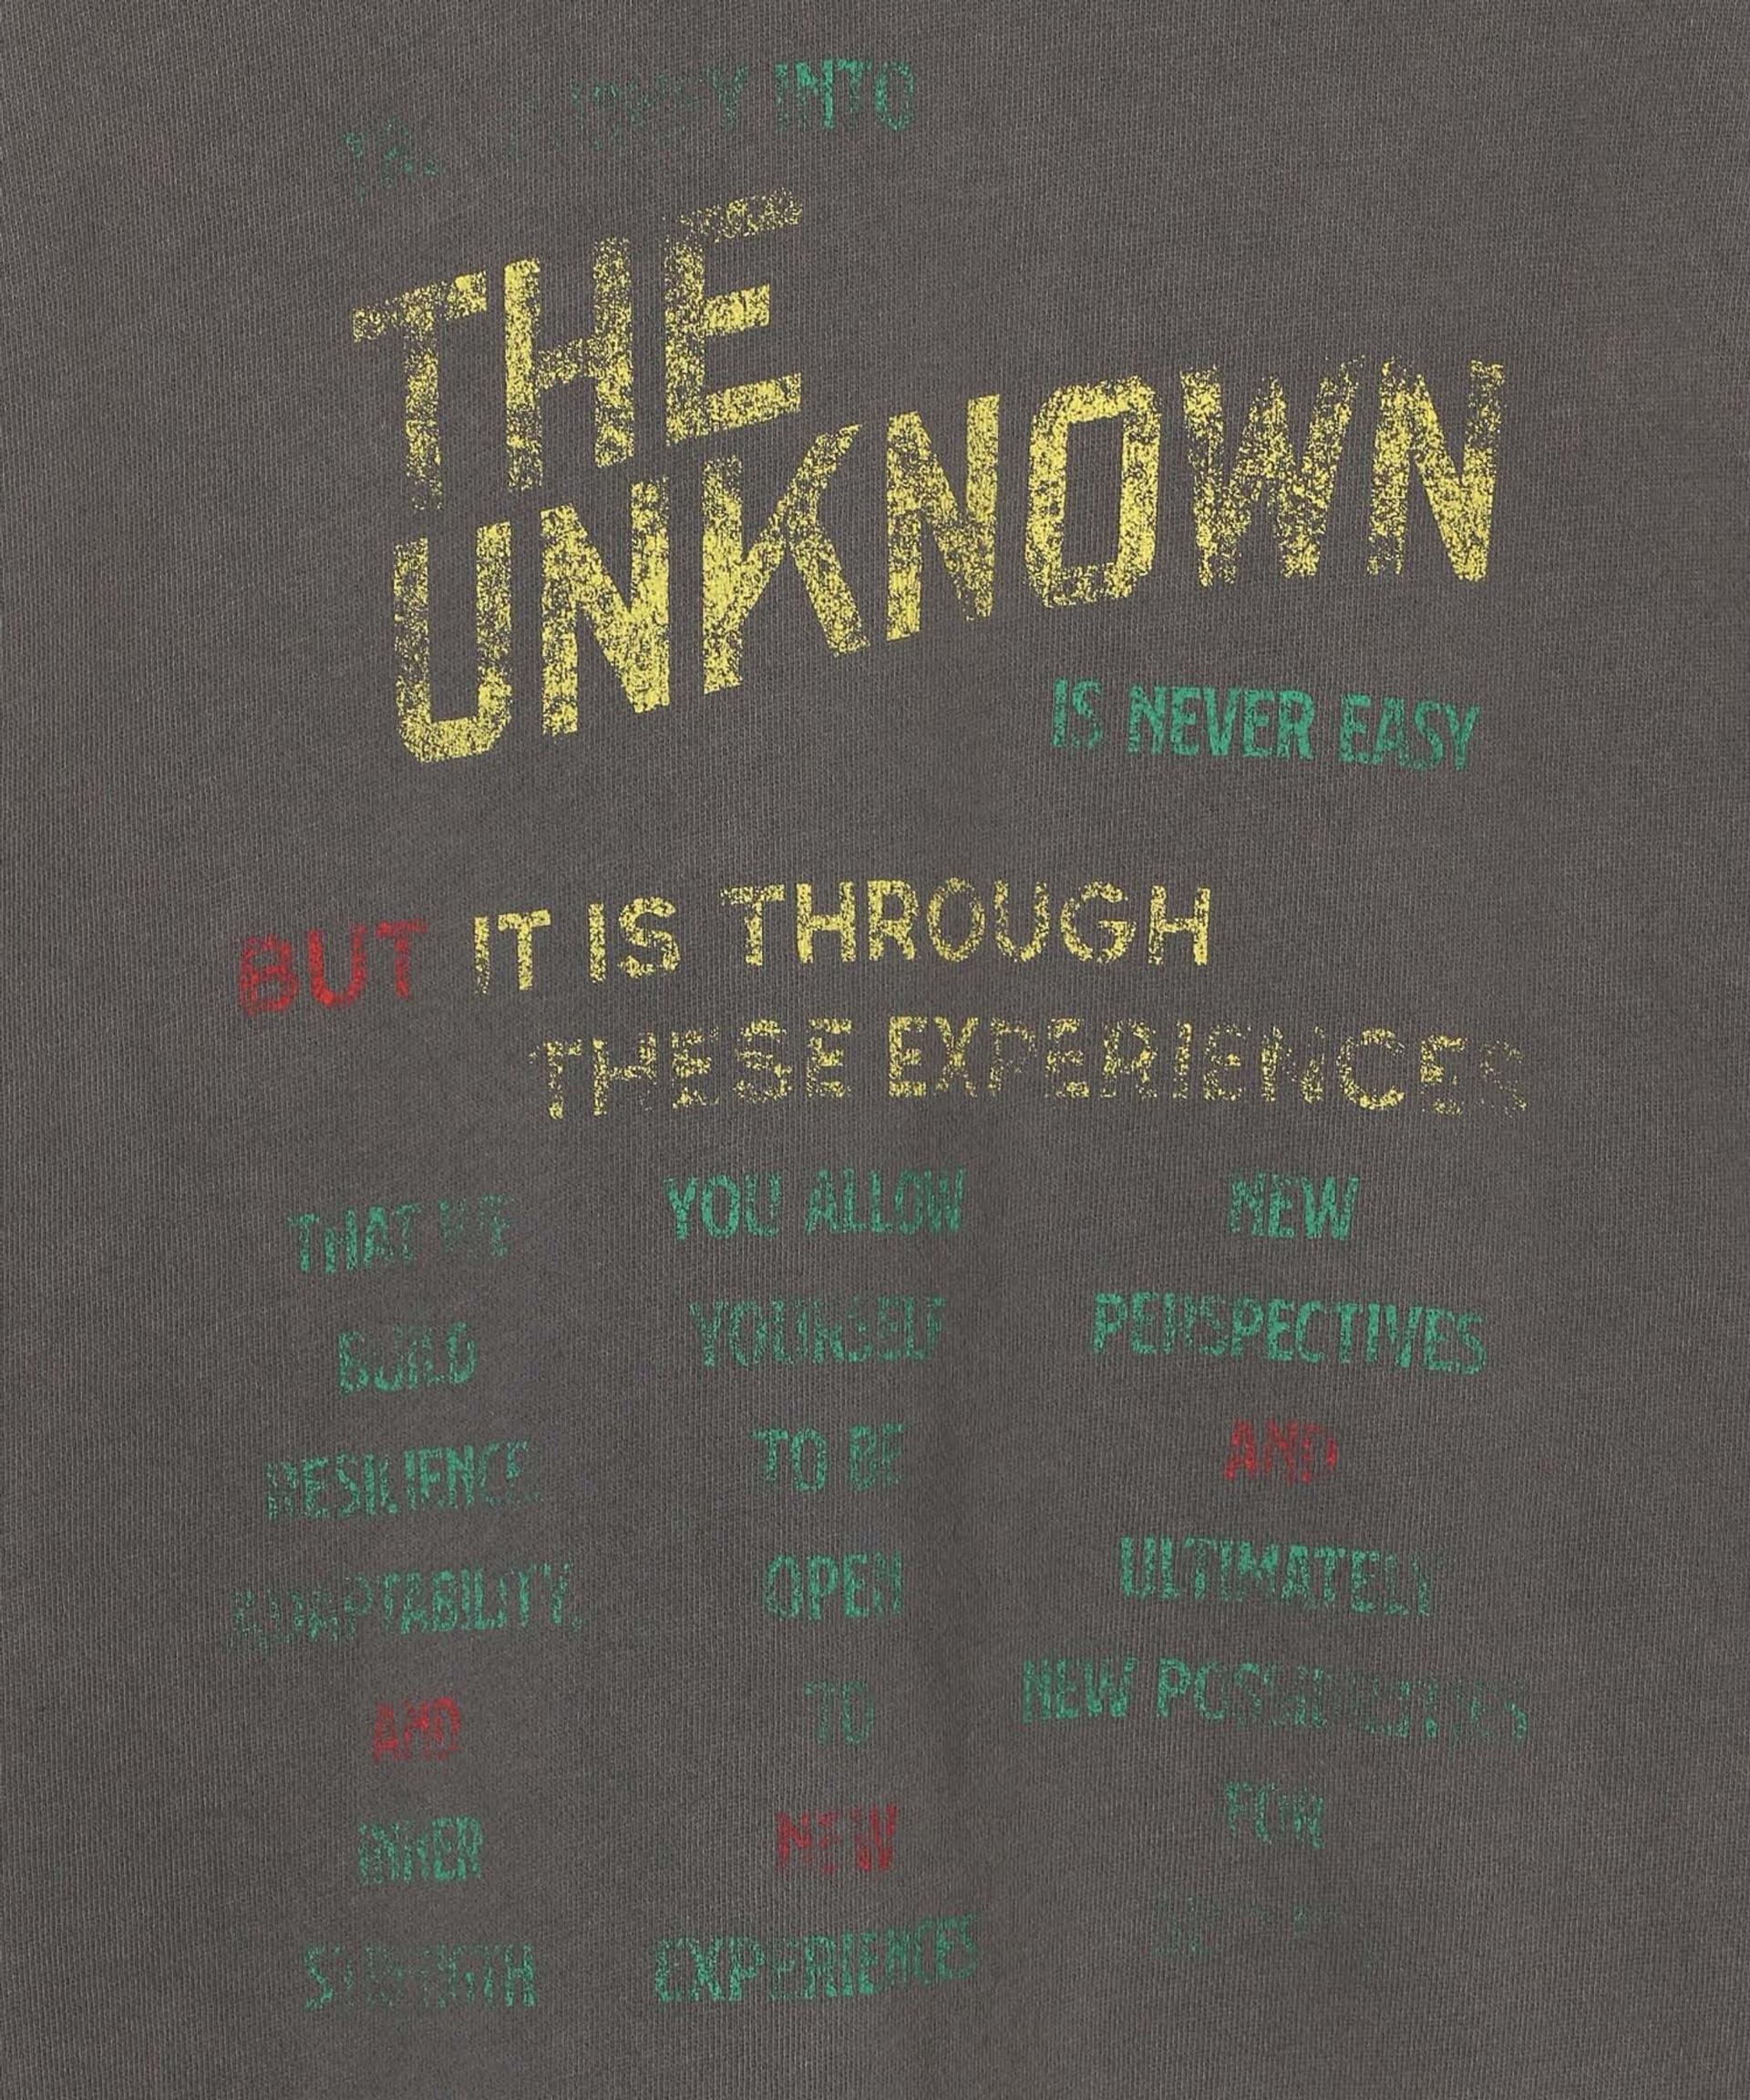 INTO
THE
UNKNOWN
IS NEVER EASY
BUT IT IS THROUGH
THESE EXPERIENCES
THAT WE
BUILD
RESILIENCE
ADAPTABILITY,
AND
INNER
STRENGTH
YOU ALLOW
YOURSELF
TO BE
OPEN
TO
NEW
EXPERIENCES
NEW
PERSPECTIVES
AND
ULTIMATELY
NEW POSSIBILITIES
FOR